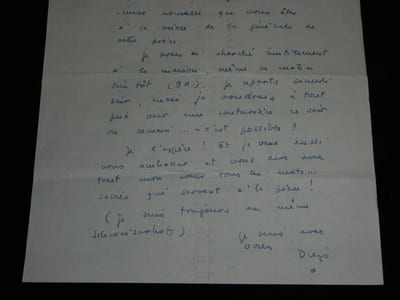 nouvelle que vous êtes
à ce succès de la générale de
votre pièce.
Je vous ai cherché inutilement
à la maison, même ce matin
très tôt (9H.). Je repars samedi
soir, mais je voudrais à tout
prix avoir une ce soir
ou demain... c'est possible?
Je l'espère! Et je veux aussi
vous embrasser et vous dire avec
tout mon cœur tous les mots...
sacrés qui servent à la pièce!
(Je suis toujours au même
je suis avec
vous